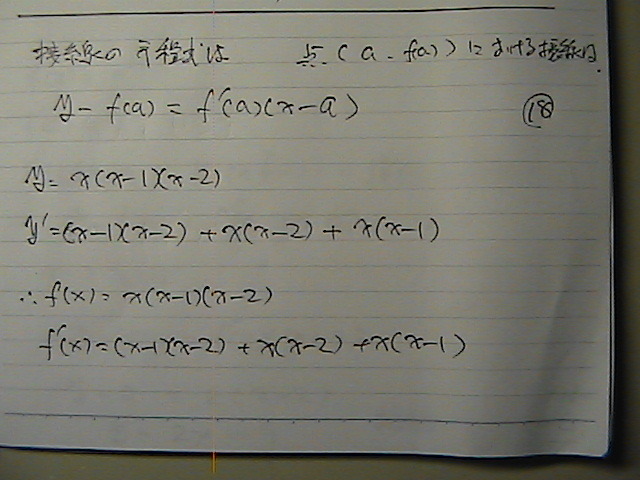 接線の方程式は 点(a, f(a))における接線は.
y - f(a) = f'(a)(x-a) ⑱
y = x(x-1)(x-2)
y' = (x-1)(x-2) + x(x-2) + x(x-1)
∴ f(x) = x(x-1)(x-2)
f'(x) = (x-1)(x-2) + x(x-2) + x(x-1)